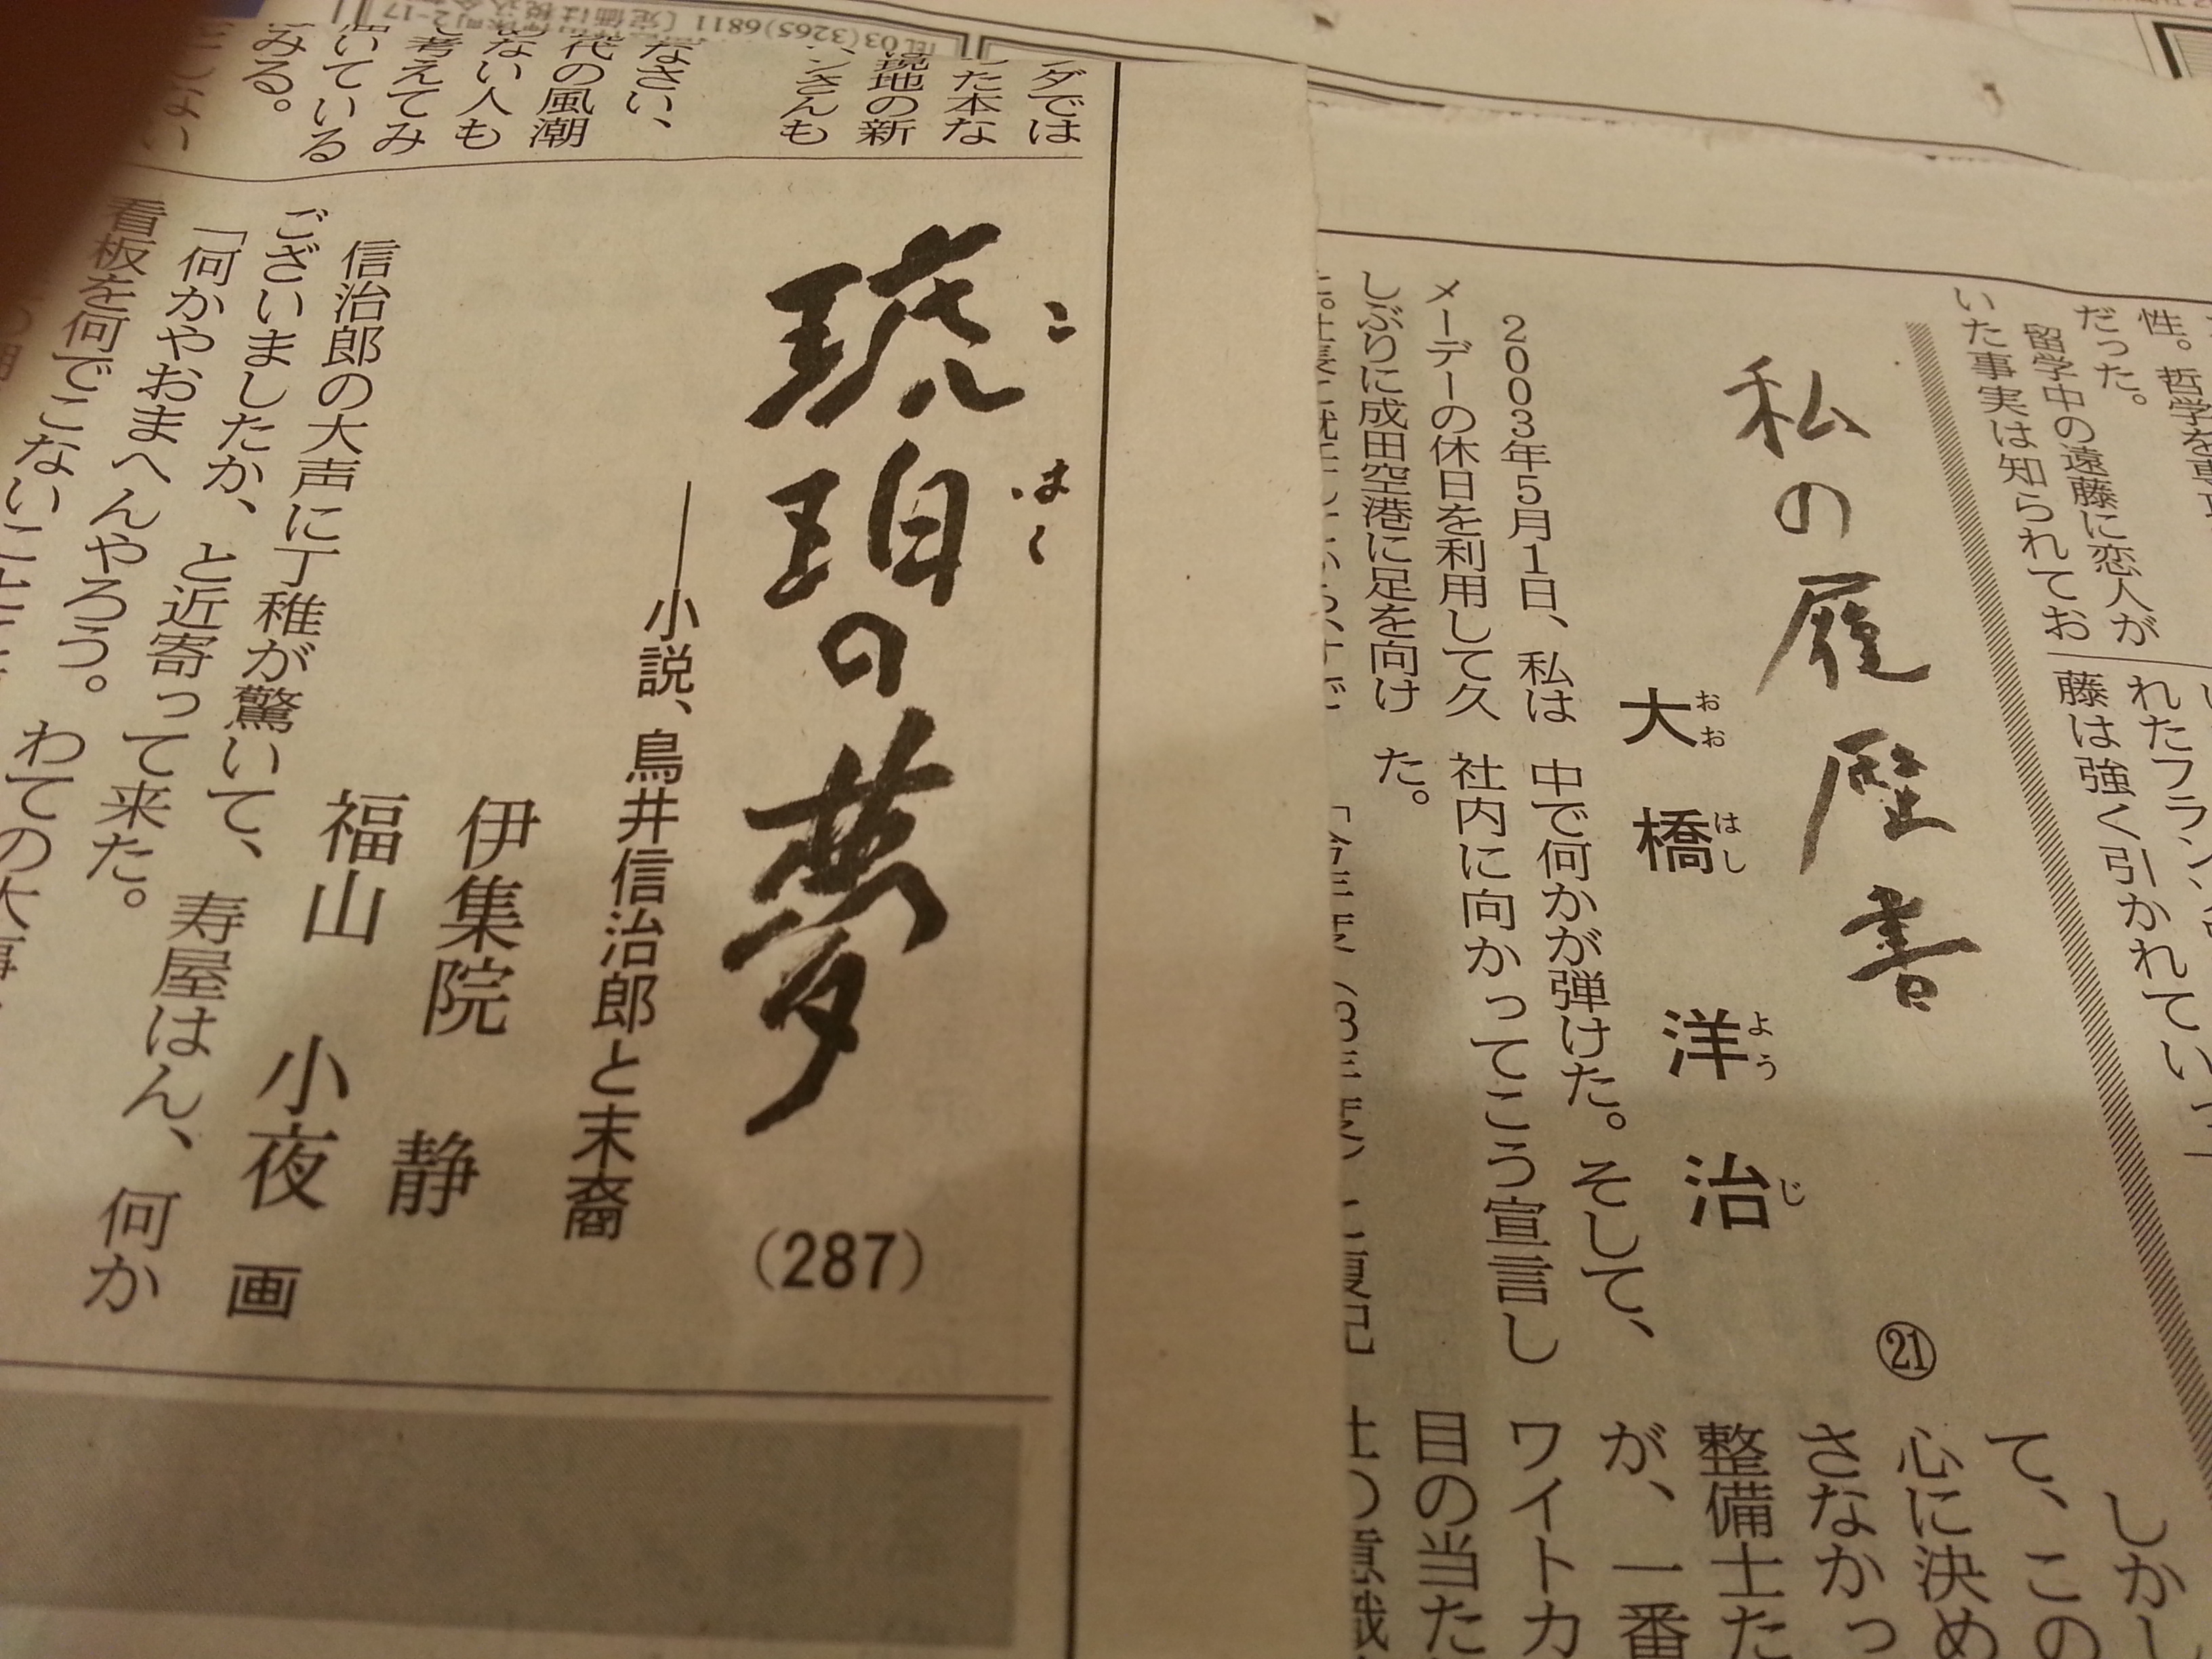 性。哲学を専攻
だった。
留学中の遠藤に恋人が
いた事実は知られてお
れたフランソ
藤は強く引かれてい
私の履歴書
大橋洋治
おおはしようじ
㉑
2003年5月1日、私は
メーデーの休日を利用して久
しぶりに成田空港に足を向け
た。
中で何かが弾けた。そして、
社内に向かってこう宣言し
た。
しかし
て、この
心に決め
さなかっ
整備士た
が、一番
ワイトカ
目の当た
TEL03(3265)6811〔定価は税込
ダでは
た本な
現地の新
ンさんも
なさい、
代の風潮
ない人も
て考えてみ
いている
みる。
琥珀の夢
こはく
(287)
――小説、鳥井信治郎と末裔
伊集院 静
福山 小夜 画
信治郎の大声に丁稚が驚いて、
ございましたか、と近寄って来た。
「何かやおまへんやろう。
看板を何でこない
寿屋はん、何か
わての大事